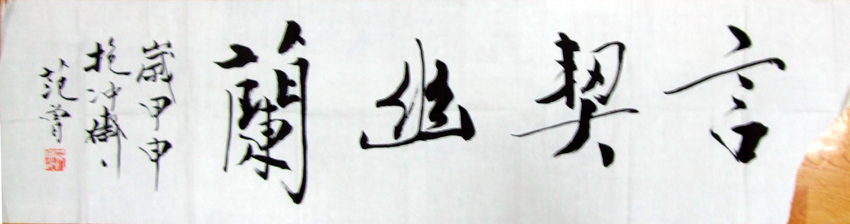 言契幽蘭
歲甲申
抱沖齋
范曾